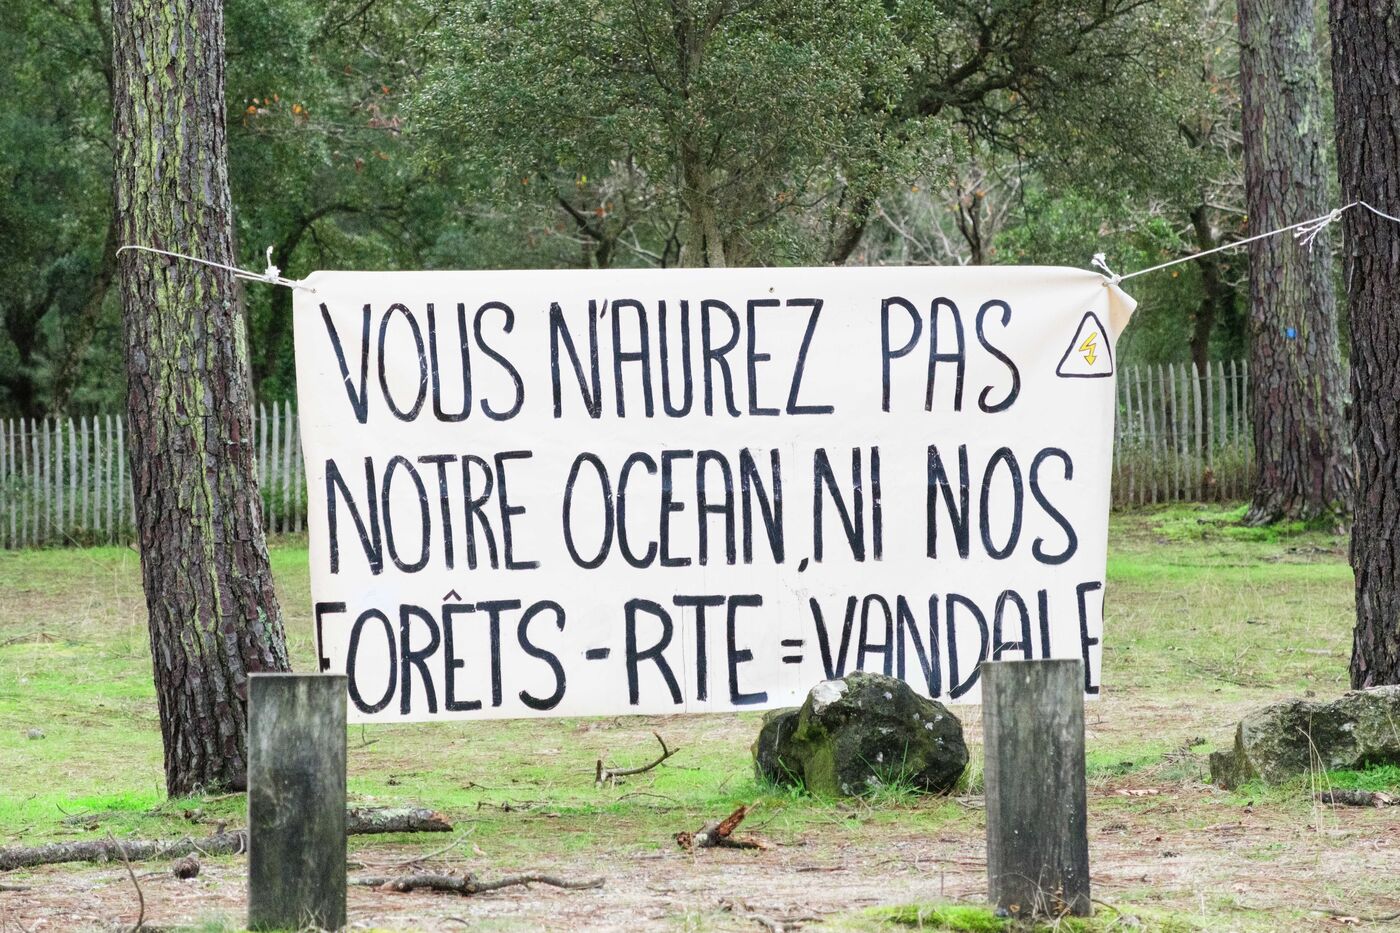 VOUS N'AUREZ PAS
NOTRE OCEAN, NI NOS
FORÊTS - RTE = VANDALE